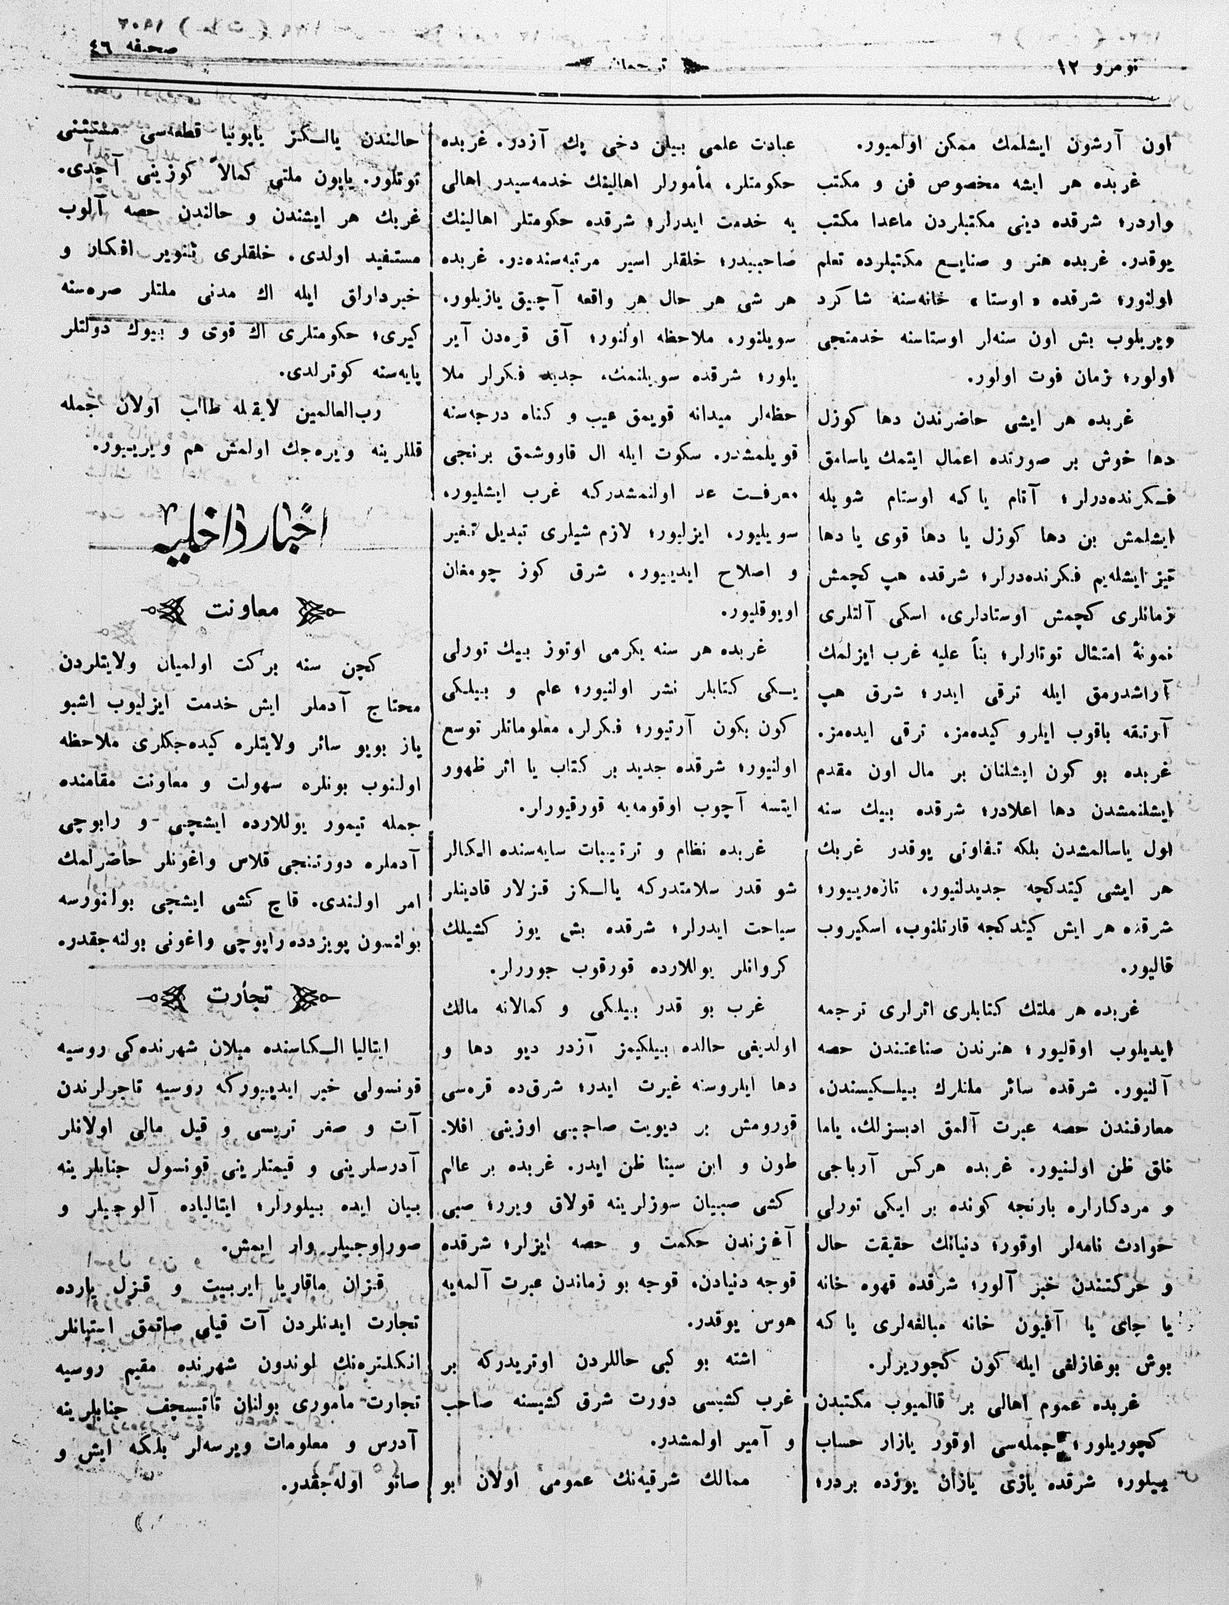 نومرو ١٢
ترجمان
صحيفه ٤٦
اون آرشون ايشلمك ممكن اولميور.
غربده هر ايشه مخصوص فن و مكتب
واردر؛ شرقده دينى مكتبلردن ماعدا مكتب
يوقدر. غربده هنر و صنايع مكتبلرده تعلم
اولنور؛ شرقده «اوستا» خانه‌سنه شاكرد
ويريلوب بش اون سنه‌لر اوستاسنه خدمتجى
اولور؛ زمان فوت اولور.
غربده هر ايشى حاضرندن دها كوزل
دها خوش بر صورتده اعمال ايتمك ياسامق
فكرنده‌درلر؛ آتام يا كه اوستام شويله
ايشلمش بن دها كوزل يا دها قوى يا دها
تيز ايشله‌يم فكرنده‌درلر؛ شرقده هپ كچمش
زمانلرى كچمش اوستادلرى، اسكى آلتلرى
نمونهٔ امتثال توتارلر؛ بناً عليه غرب ايزلمك
آراشدرمق ايله ترقى ايدر؛ شرق هپ
آرتقه باقوب ايلرو كيده‌مز، ترقى ايده‌مز.
غربده بو كون ايشلنان بر مال اون مقدم
ايشلنمشدن دها اعلادر؛ شرقده بيك سنه
اول ياسالمشدن بلكه تفاوتى يوقدر غربك
هر ايشى كيتدكچه جديدلنيور، تازه‌ريیور؛
شرقده هر ايش كيتدكجه قارتلنوب، اسكيروب
قاليور.
غربده هر ملتك كتابلرى اثرلرى ترجمه
ايديلوب اوقليور؛ هنرندن صناعتندن حصه
آلنيور. شرقده سائر ملتلرك بيلكيسندن،
معارفندن حصه عبرت آلمق ادبسزلك، ياما
نلق ظن اولنيور. غربده هركس آرباجى
و مردكارلره بارنجه كونده بر ايكى تورلى
حوادث نامه‌لر اوقور؛ دنيانك حقيقت حال
و حركتندن خبر آلور؛ شرقده قهوه خانه
يا چاى يا آفيون خانه مبالغه‌لرى يا كه
بوش بوغازلغى ايله كون كچوريرلر.
غربده عموم اهالى بر قالميوب مكتبدن
كچوريلور؛ جمله‌سى اوقور يازار حساب
بيلور؛ شرقده يازى يازان يوزده بردر؛
عبادت علمى بيلن دخى پك آزدر. غربده
حكومتلر، مأمورلر اهالينك خدمه‌سيدر اهالى
يه خدمت ايدرلر؛ شرقده حكومتلر اهالينك
صاحبيدر؛ خلقلر اسير مرتبه‌سنده‌در. غربده
هر شى هر حال هر واقعه آچيق يازيلور،
سويلنور، ملاحظه اولنور؛ آق قره‌دن آير
يلور؛ شرقده سويلنمك، جديد فكرلر ملا
حظه‌لر ميدانه قويمق عيب و كناه درجه‌سنه
قويلمشدر. سكوت ايله ال قاووشمق برنجى
معرفت عد اولنمشدركه غرب ايشليور،
سويليور، ايزليور؛ لازم شيلرى تبديل تغير
و اصلاح ايدييور، شرق كوز چومغان
اويوقليور.
غربده هر سنه يكرمى اوتوز بيك تورلى
يكى كتابلر نشر اولنيور؛ علم و بيلكى
كون بكون آرتيور؛ فكرلر، معلوماتلر توسع
اولنيور؛ شرقده جديد بر كتاب يا اثر ظهور
ايتسه آچوب اوقومه‌يه قورقيورلر.
غربده نظام و ترتيبات سايه‌سنده الكالر
شو قدر سلامتدركه يالكز قزلار قادينلر
سياحت ايدرلر؛ شرقده بش يوز كشيلك
كروانلر يوللارده قورقوب جوررلر.
غرب بو قدر بيلكى و كمالاته مالك
اولديغى حالده بيلكيمز آزدر ديو دها و
دها ايلروسنه غيرت ايدر؛ شرق‌ده قره‌سى
قررومش بر ديويت صاحبى اوزينى افلا
طون و ابن سينا ظن ايدر. غربده بر عالم
كشى صبيان سوزلرينه قولاق ويرر؛ صبى
آغزندن حكمت و حصه ايزلر؛ شرقده
قوجه دنيادن، قوجه بو زماندن عبرت آلمه‌يه
هوس يوقدر.
اشته بو كبى حاللردن اوتريدركه بر
غرب كشيسى دورت شرق كشيسنه صاحب
و آمير اولمشدر.
ممالك شرقيه‌نك عمومى اولان بو
حالندن يالكز ياپونيا قطعه‌سى مستثنى
توتلور. ياپون ملتى كمالاً كوزينى آچدى.
غربك هر ايشندن و حالندن حصه آلوب
مستفيد اولدى. خلقلرى تنوير افكار و
خبرداراق ايله اك مدنى ملتلر صره‌سنه
كيرى؛ حكومتلرى اك قوى و بيوك دولتلر
پايه‌سنه كوترلدى.
رب‌العالمين لايقله طالب اولان جمله
قللرينه ويره‌جك اولمش هم ويريیور.
اخبار داخليه
معاونت
كچن سنه بركت اولميان ولايتلردن
محتاج آدملر ايش خدمت ايزليوب اشبو
ياز بويو سائر ولايتلره كيده‌جكلرى ملاحظه
اولنوب بونلره سهولت و معاونت مقامنده
جمله تيمور يوللارده ايشچى و رابوچى
آدملره دورتنجى قلاس واغونلر حاضرلمك
امر اولندى. قاچ كشى ايشچى بولنورسه
بولنسون پويزدده رابوچى واغونى بولنه‌جقدر.
تجارت
ايتاليا الكاسنده ميلان شهرنده‌كى روسيه
قونسولى خبر ايدييوركه روسيه تاجرلرندن
آت و صغر تريسى و قيل مالى اولانلر
آدرسلرينى و قيمتلرينى قونسول جنابلرينه
بيان ايده بيلورلر؛ ايتالياده آلوجيلر و
صوراوجيلر وار ايمش.
قزان ماقاريا ايربيت و قزل يارده
تجارت ايدنلردن آت قيلى صاتمق استيانلر
انكلتره‌نك لوندون شهرنده مقيم روسيه
تجارت مأمورى بولنان تاتيسچف جنابلرينه
آدرس و معلومات ويرسه‌لر بلكه ايش و
صاتو اوله‌جقدر.